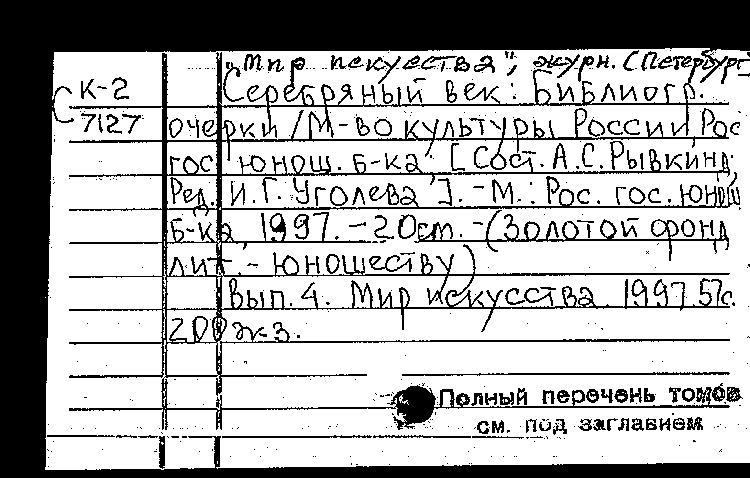 „Мир искусства", журн. (Петербург)
К-2 Серебряный век: Библиогр.
7127 очерки / М-во культуры России, Рос
гос. юнош. б-ка; [Сост. А.С. Рывкинд;
Ред. И.Г. Уголева]. - М.: Рос. гос. юнош
б-ка, 1997. - 20 см. - (Золотой фонд
лит. - юношеству)
Вып. 4. Мир искусства. 1997. 57с.
200 экз.
Полный перечень томов
см. под заглавием